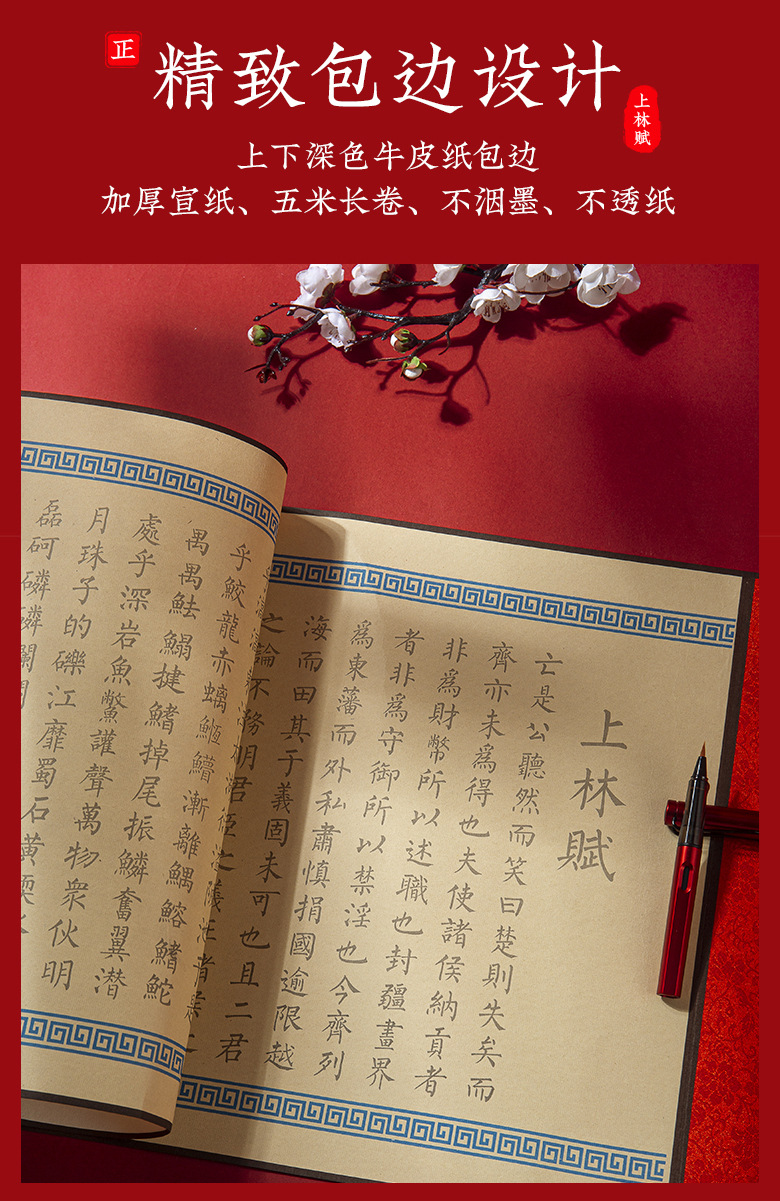 正
精致包边设计
上林赋
上下深色牛皮纸包边
加厚宣纸、五米长卷、不洇墨、不透纸
上林賦
亡是公聽然而笑曰楚則失矣而
齊亦未爲得也夫使諸侯納貢者
非爲財幣所以述職也封疆畫界
者非爲守御所以禁淫也今齊列
爲東藩而外私肅慎捐國逾限越
海而田其于義固未可也且二君
之論不務明君臣之義
乎鮫龍赤螭䱭䲛漸離鰅鰫鰭鮀
禺禺魼鰨揵鰭掉尾振鱗奮翼潛
處乎深岩魚鱉讙聲萬物眾伙明
月珠子的礫江靡蜀石黃碝
磊砢磷磷爛